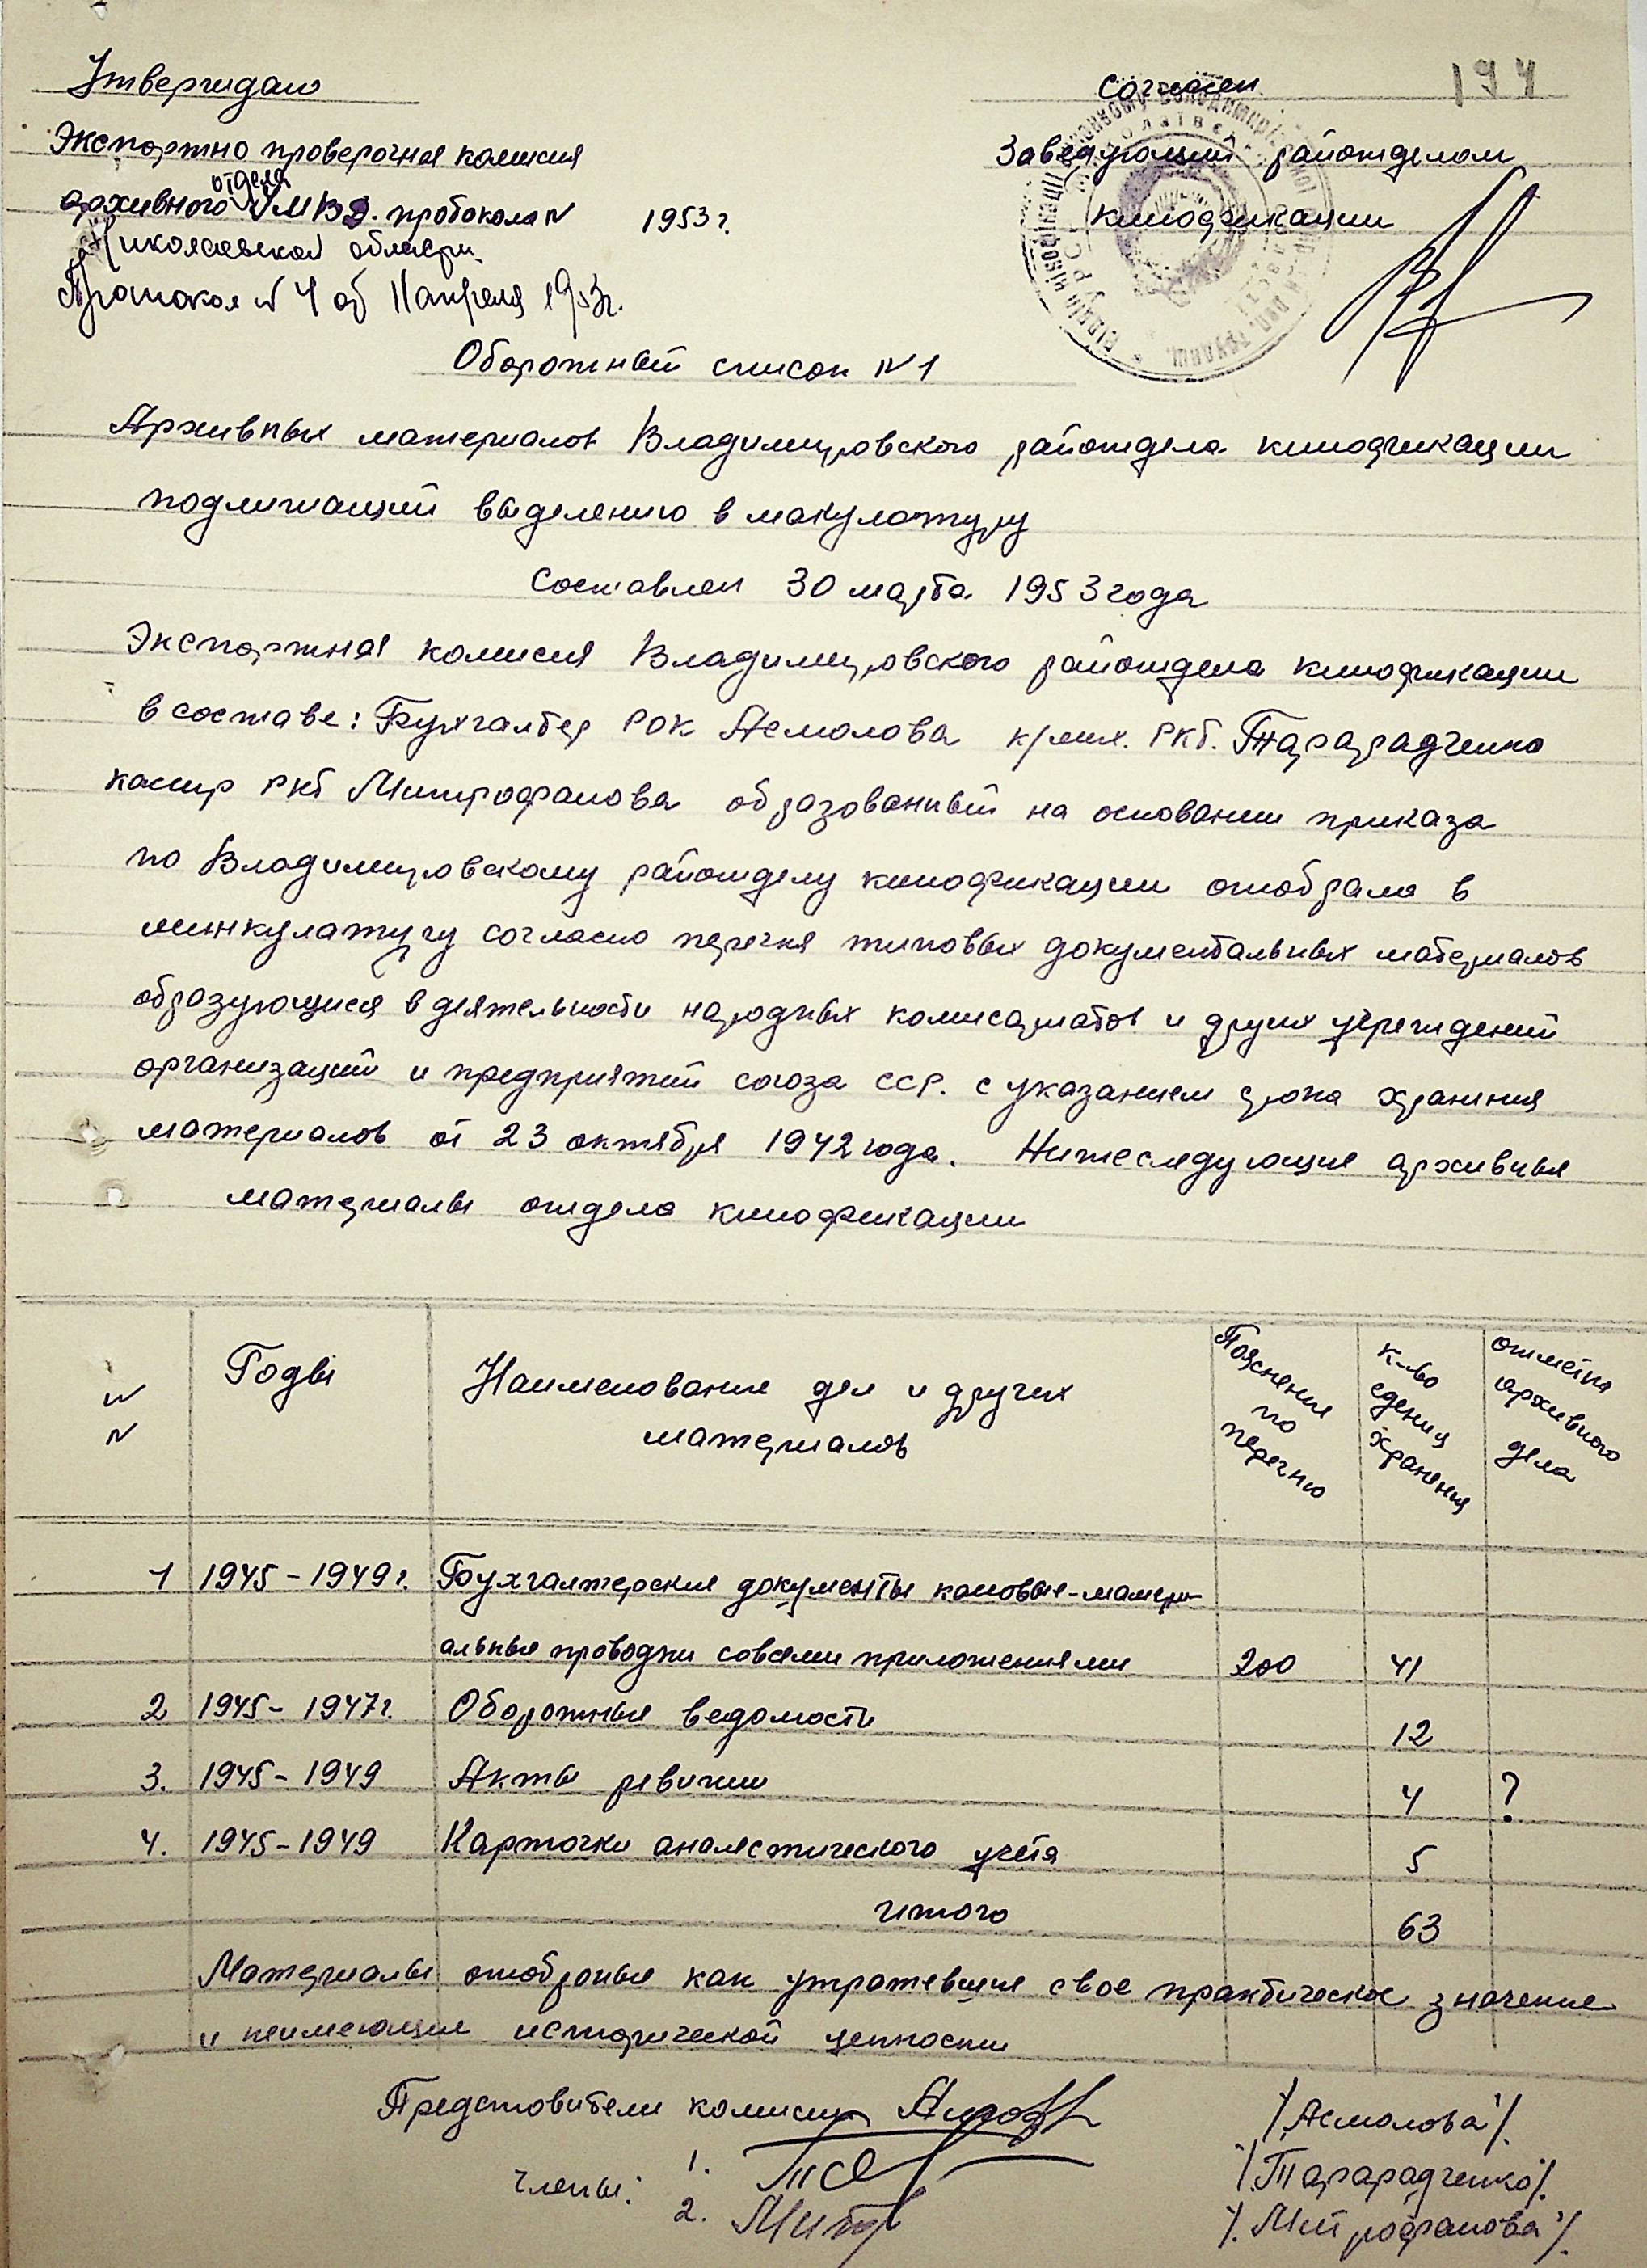 Утверждаю
Экспортно проверочная комисия
отдела
архивного УМВД. протокола N 1953 г.
Николаевской области
Протокол N 4 об 11 апреля 1953г.
194
согласен
Заведующий райотделом
кинофикации
Оборотный список N 1
Архивных материалов Владимировского райотдела кинофикации
подлижащий выделению в макулатуру
Составлен 30 марта 1953 года
Экспортная комисия Владимировского райотдела кинофикации
в составе: Бухгалтер РОК Асмолова к/мех. РКб. Тарарадченко
касир РКб Митрофанова образованный на основании приказа
по Владимировскому райотделу кинофикации отобрала в
минкулатуру согласно перечня типовых документальных материалов
образующися в деятельности народных комисариатов и других учреждений
организаций и предприятий союза ССР. с указанием срока хранения
материалов от 23 октября 1942 года. Нижеследующие архивные
материалы отдела кинофикации
N N
Годы
Наименование дел и других
материалов
Пояснение
по
перечню
к-во
едениц
хранения
отметка
архивного
дела
1 1945 - 1949 г. Бухгалтерские документы касовые-матери-
альные проводки совсеми приложениями 200 41
2 1945 - 1947г. Оборотные ведомости 12
3. 1945 - 1949 Акты ревизии 4 ?
4. 1945 - 1949 Карточки аналестического учета 5
итого 63
Материалы отобраные как утратевшие свое практическое значение
и неимеющие исторической ценности
Представители комисии /Асмолова/.
члены: 1. /.Тарарадченко/.
2. Митр /.Митрофанова/.